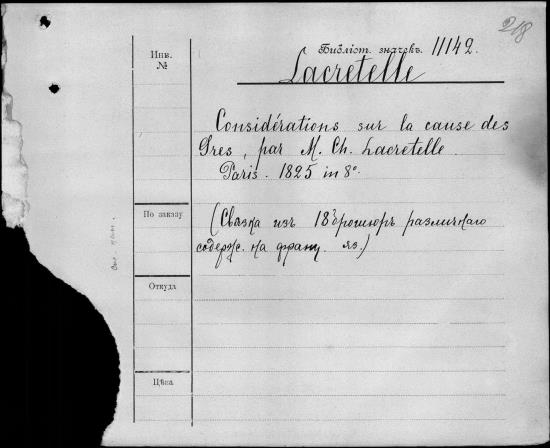 218
Инв. №
Библіот. значекъ 11142.
Lacretelle
Considérations sur la cause des
Gres, par M. Ch. Lacretelle.
Paris. 1825 in 8°.
По заказу
(Связка изъ 18 брошюръ различнаго
содерж. на франц. яз.)
Откуда
Цѣна